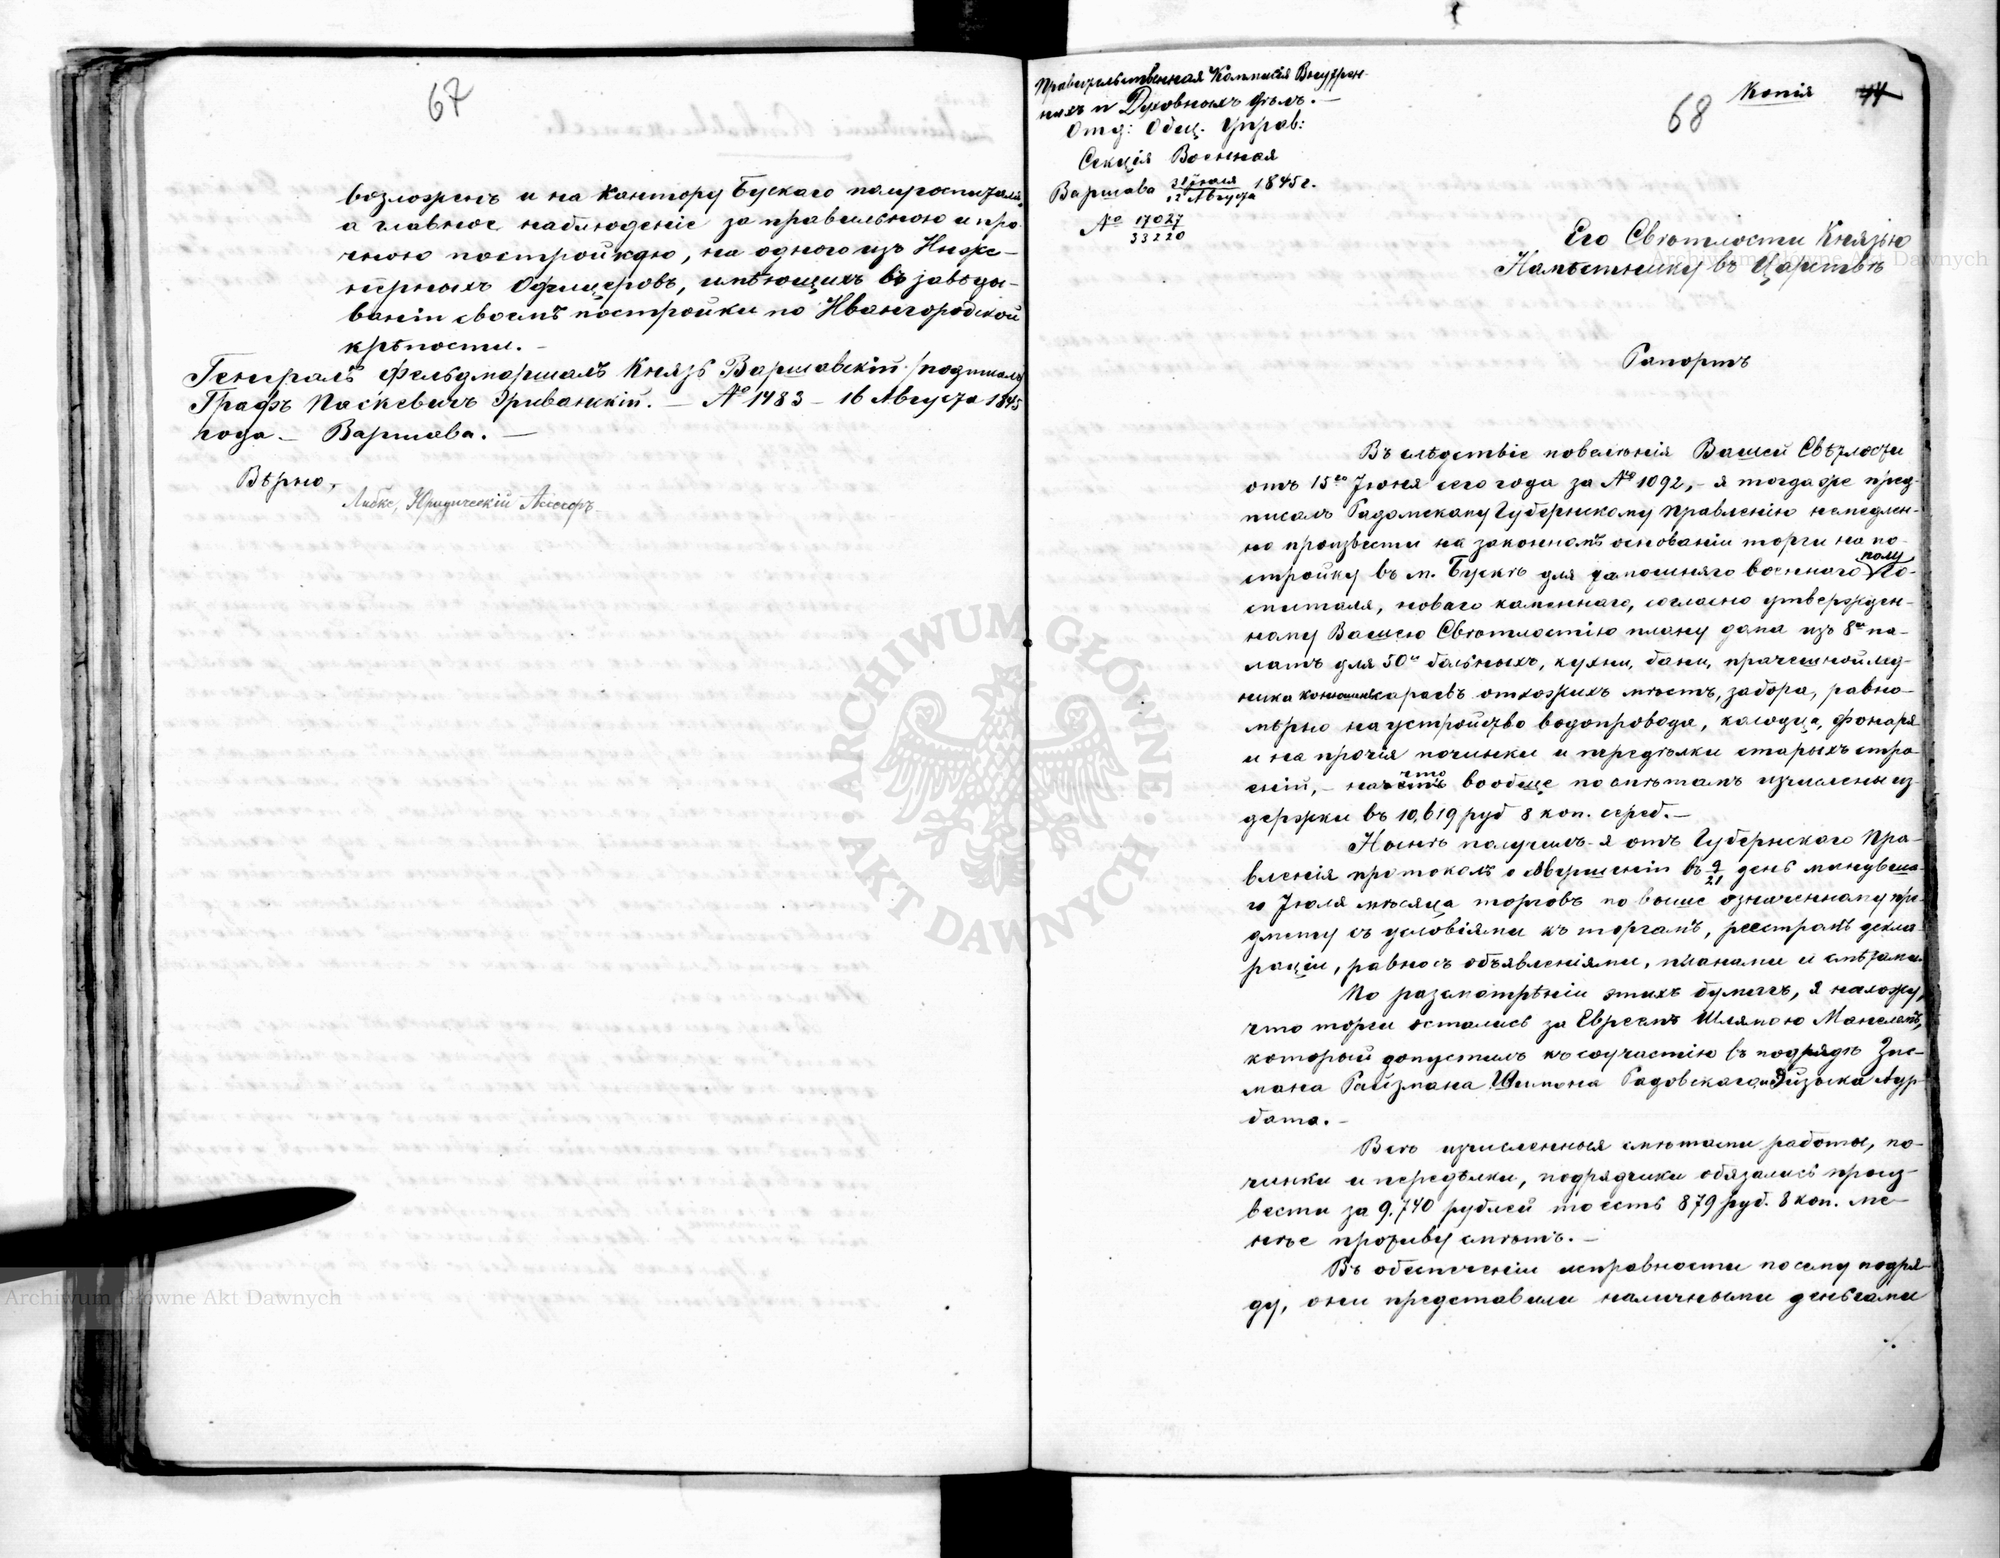 67
возложенъ и на Контору Бускаго полугоспиталя,
а главное наблюденіе за правильною и про-
чною постройкою, на одного изъ Инже-
нерныхъ Офицеровъ, имѣющихъ въ завѣды-
ваніи своемъ постройки по Ивангородской
крѣпости. -
Генералъ Фельдмаршалъ Князь Варшавскій /подписалъ/
Графъ Паскевичъ Эриванскій. - № 1483 - 16 Августа 1845
года - Варшава. -
Вѣрно,
Либке, Юридическій Асесоръ
Правительственная Коммисія Внутрен-
нихъ и Духовныхъ дѣлъ. -
Отд: Общ. Управ:
Секція Военная
Варшава 31 Іюля / 12 Августа 1845 г.
№ 17027 / 33220
68
Копія
44
Его Свѣтлости Князю
Намѣстнику въ Царствѣ
Рапортъ
Въ слѣдствіе повелѣнія Вашей Свѣтлости
отъ 15го Іюня сего года за № 1092, - я тогда же пред-
писалъ Радомскому Губернскому Правленію немедлен-
но произвести на законномъ основаніи торги на по-
стройку въ м. Бускѣ для тамошняго военнаго полуго-
спиталя, новаго каменнаго, согласно утвержден-
ному Вашею Свѣтлостію плану дома изъ 8и па-
латъ для 50и больныхъ, кухни, бани, прачешной лед-
ника конюшни сараевъ отхожихъ мѣстъ, забора, равно-
мѣрно на устройство водопровода, колодца, фонаря
и на прочія починки и передѣлки старыхъ стро-
еній, - на что вообще по смѣтамъ изчислены из-
держки въ 10,619 руб 8 коп. сереб. -
Нынѣ получилъ я отъ Губернскаго Пра-
вленія протоколъ о совершеніи въ 9/21 день минувша-
го Іюля мѣсяца торговъ по выше означенному пре-
дмету съ условіями къ торгамъ, реестрамъ декла-
раціи, равно съ объявленіями, планами и смѣтами.
По разсмотрѣніи этихъ бумагъ, я нахожу,
что торги остались за Евреемъ Шлямою Манелемъ,
который допустилъ къ соучастію въ подрядѣ Зис-
мана Райзмана Шимона Радовскаго и Эйзыка Аур-
баха. -
Всѣ изчисленныя смѣтами работы, по-
чинки и передѣлки, подрядчики обязались произ-
вести за 9,740 рублей то есть 879 руб. 8 коп. ме-
нѣе противу смѣтъ. -
Въ обезпеченіи исправности по сему подря-
ду, они представили наличными деньгами
Archiwum Główne Akt Dawnych
ARCHIWUM GŁÓWNE AKT DAWNYCH
Archiwum Główne Akt Dawnych